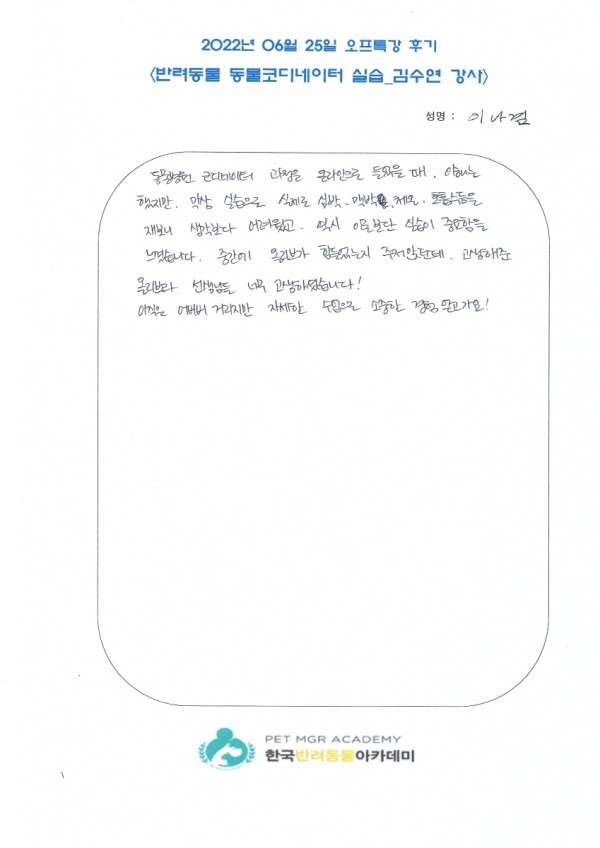 2022년 06월 25일 오프특강 후기
<반려동물 동물코디네이터 실습_김수연 강사>
성명 : 이나겸
동물병원 코디네이터 과정을 온라인으로 들었을 때, 이해는
했지만, 막상 실습으로 실제로 심박, 맥박, 체온, 호흡수등을
재보니 생각보다 어려웠고, 역시 이론보단 실습이 중요함을
느꼈습니다. 중간에 올리브가 힘들었는지 주저앉던데, 고생해준
올리브와 선생님들 너무 고생하셨습니다!
아직은 어버버 거리지만 자세한 수업으로 소중한 경험 얻고가요!
PET MGR ACADEMY
한국반려동물아카데미